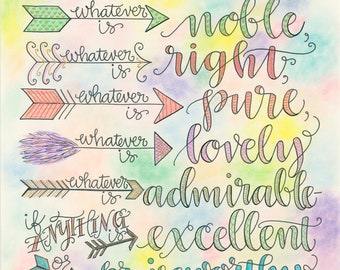 whatever is noble,
whatever is right,
whatever is pure,
whatever is lovely
whatever is admirable
if ANYTHING excellent
or